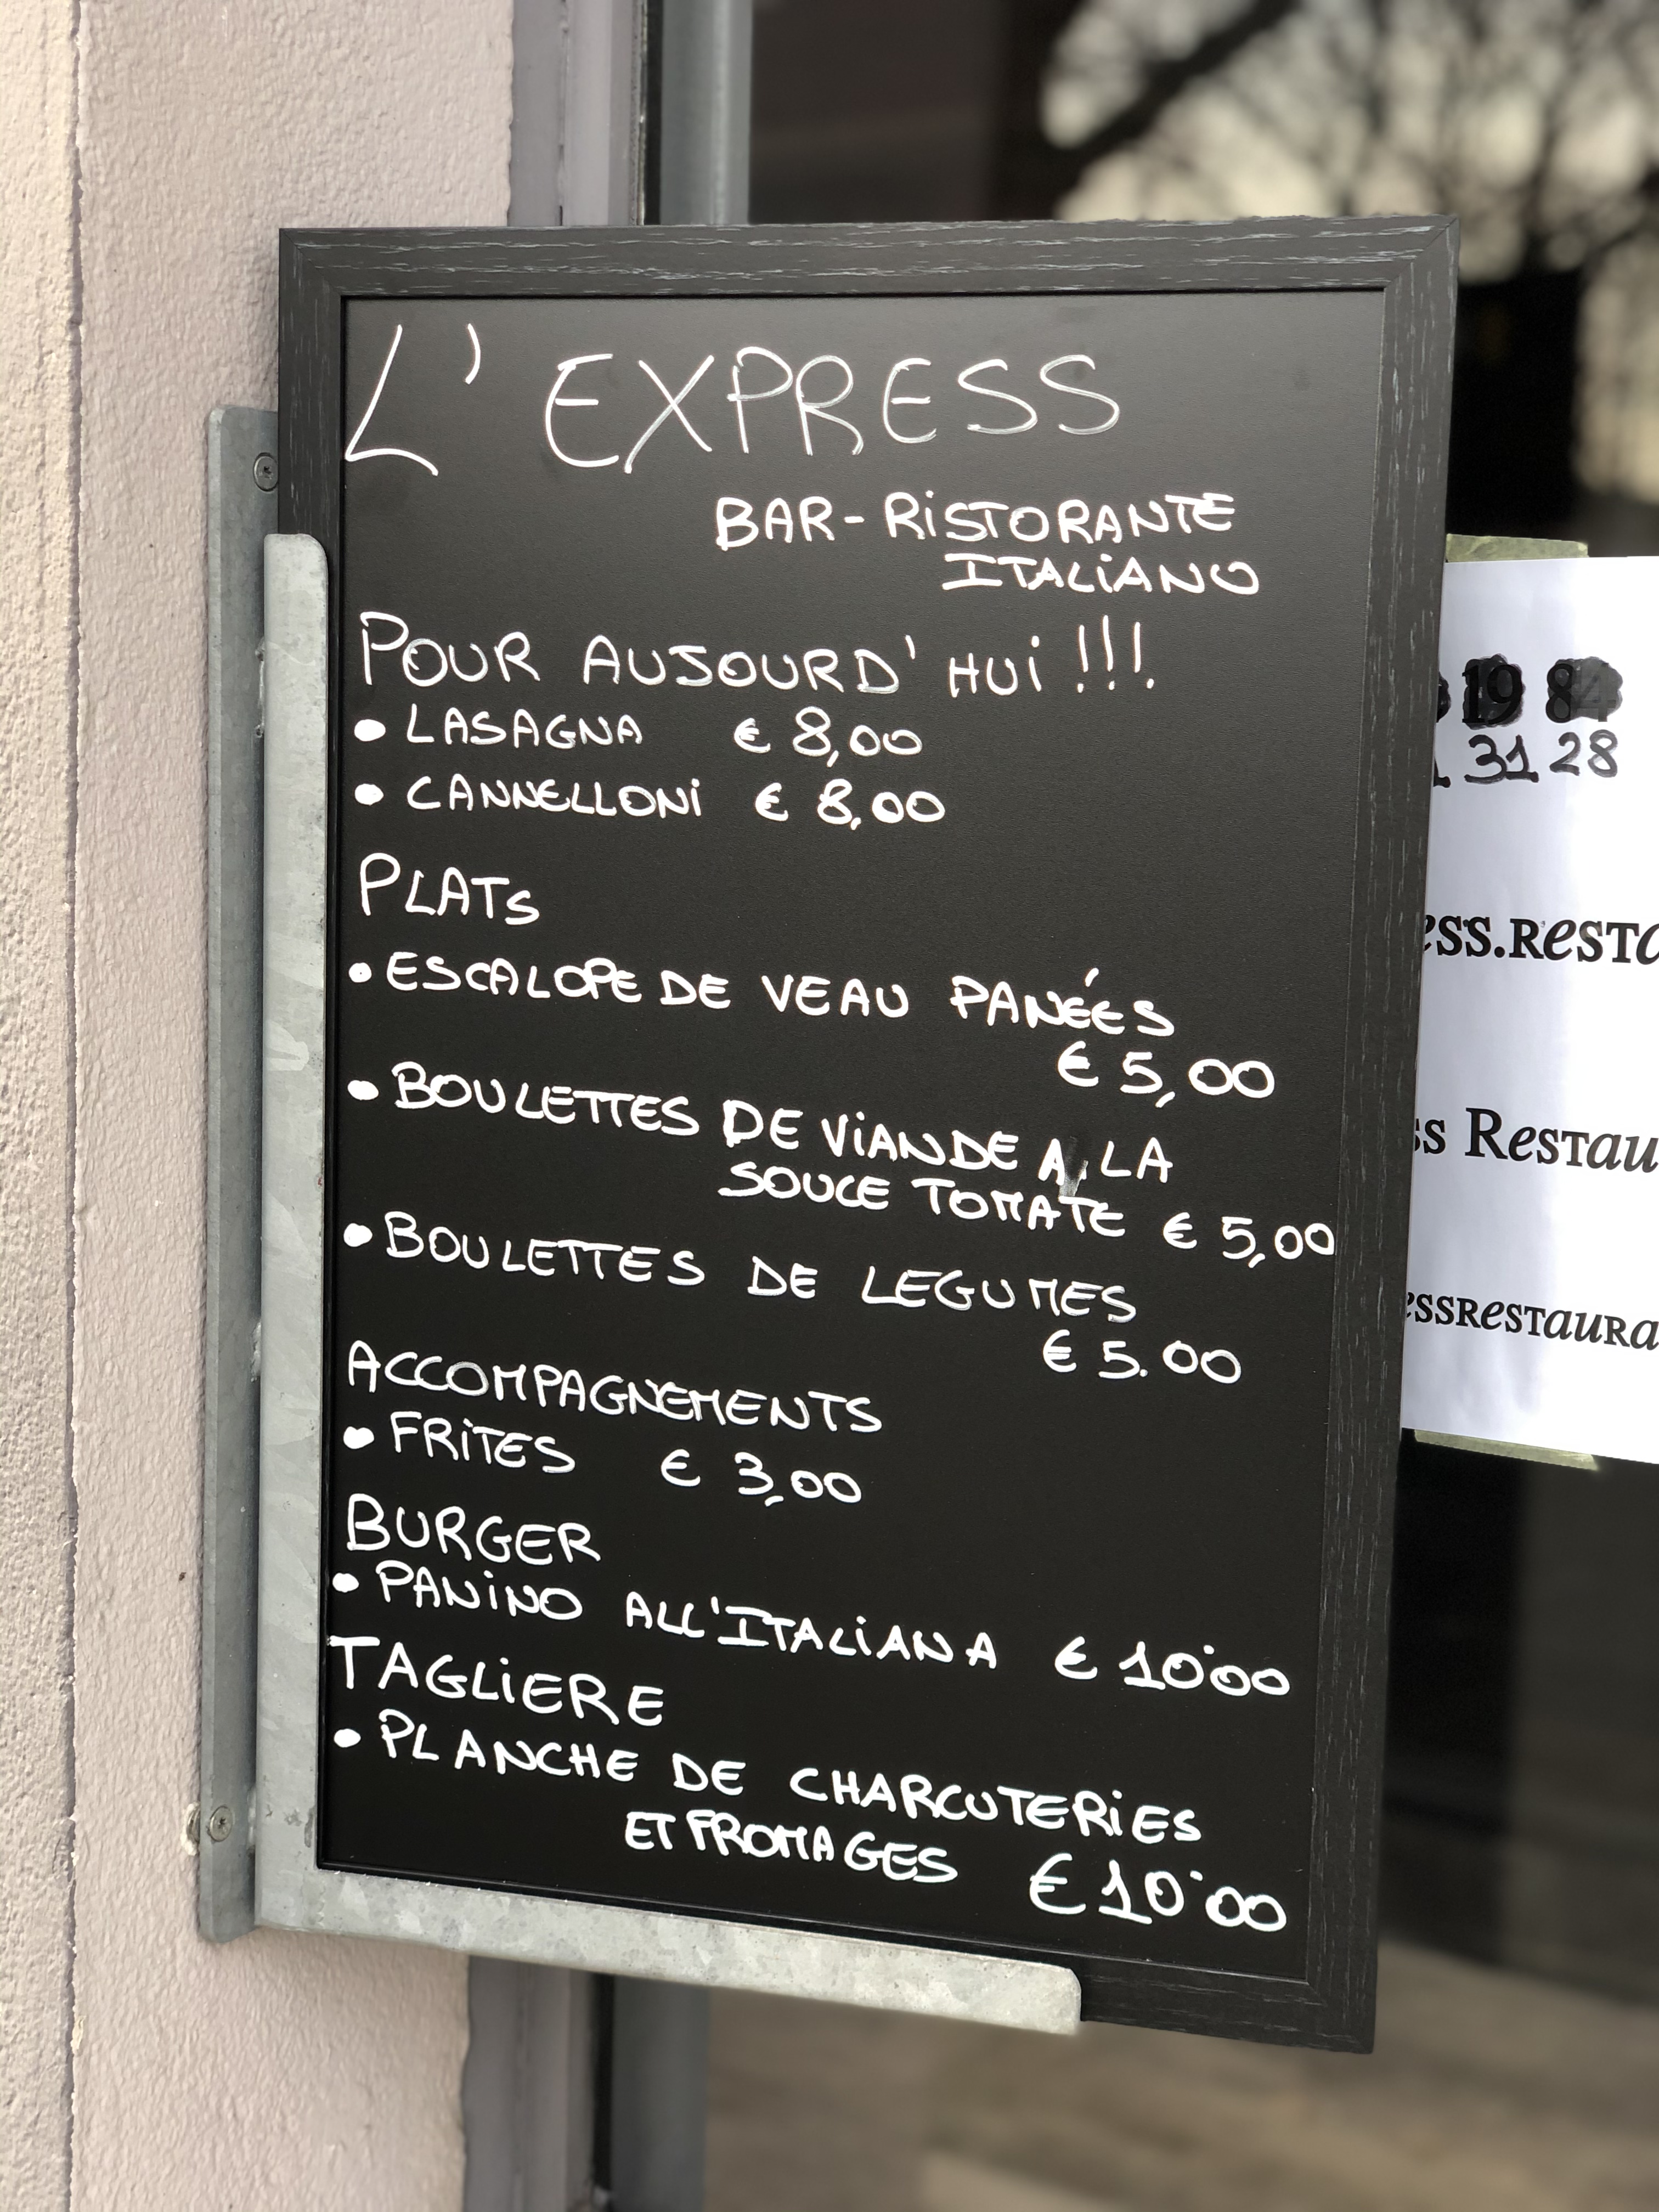 L'EXPRESS
BAR-RiSTORANTE
ITALiANO
POUR AUJOURD'HUi !!!
• LASAGNA € 8,00
• CANNELLONi € 8,00
PLATS
• ESCALOPE DE VEAU PANÉES
€ 5,00
• BOULETTES DE ViANDE A LA
SOUCE TOMATE € 5,00
• BOULETTES DE LEGUMES
€ 5.00
ACCOMPAGNEMENTS
• FRiTES € 3,00
BURGER
• PANiNO ALL'ITALiANA € 10'00
TAGLiERE
• PLANCHE DE CHARCUTERiES
ET FROMAGES € 10'00
19 84
31 28
ess.Resta
ss Restau
essrestaura